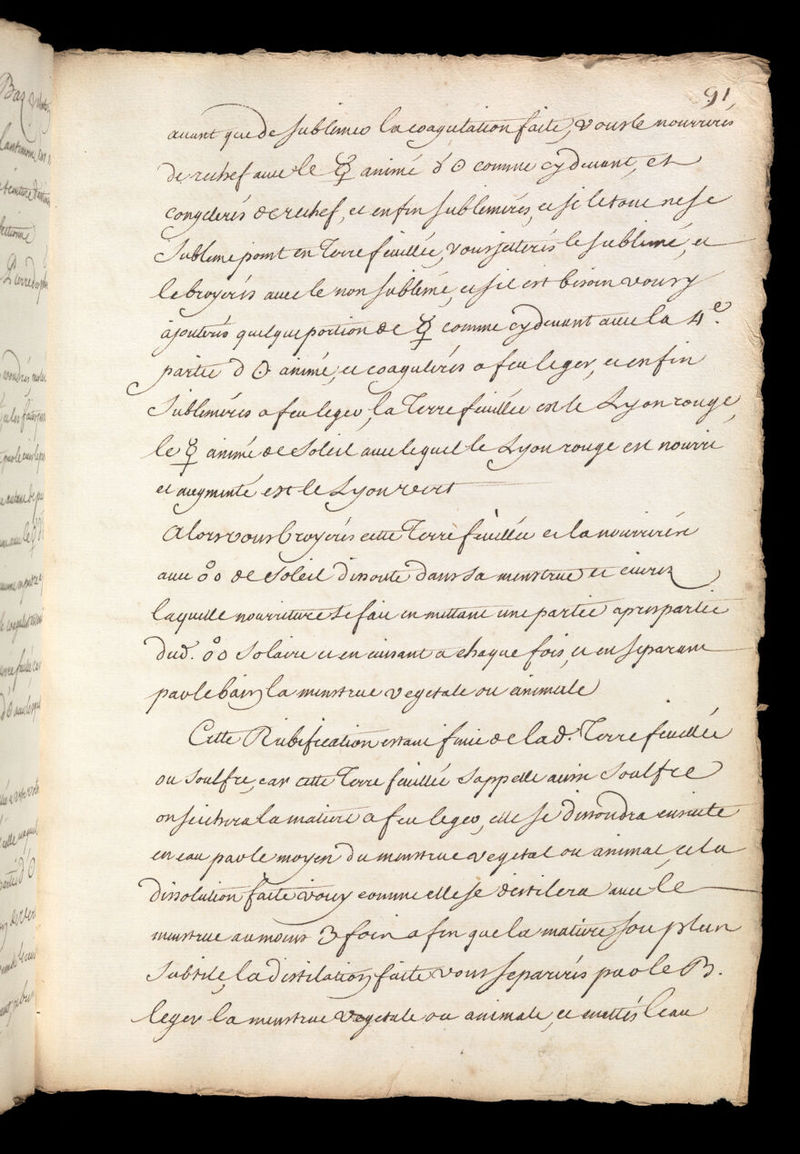 91
auant que de sublimer la coagulation faite, vous le nourrirés
de rechef auec le ☿ animé d ☉ comme cy deuant, et
congelerés de rechef, et enfin sublimerés, et si le tout ne se
sublime point en Terre feuillée, vous jetterés le sublimé, et
le broyerés auec le non sublimé, et s'il est besoin vous y
ajouterés quelque portion de ☿ comme cy deuant auec la 4e.
partie d ☉ animé, et coagulerés a feu leger, et enfin
sublimerés a feu leger, la Terre feuillée est le Lyon rouge,
le ☿ animé de Soleil auec lequel le Lyon rouge est nourri
et augmenté est le Lyon vert
Alors vous broyerés cette Terre feuillée et la nourrirés
auec de Soleil dissoute dans sa menstrue et cuirez
laquelle nourriture se fait en mettant une partie apres partie
dud. Solaire et en cuisant a chaque fois, et en separant
par le bain la menstrue vegetale ou animale
Cette Rubification estant finie de lad. Terre feuillée
ou soulfre, car cette Terre feuillée s'appelle aussi soulfre
on seichera la matiere a feu leger, elle se dissoudra ensuite
en eau par le moyen du menstrue vegetal ou animal, et la
dissolution faite comme elle se distilera auec le
menstrue au moins 3 fois a fin que la matiere soit plus
subtile, la distilation faite vous separerés par le B.
leger la menstrue vegetale ou animale, et mettés l'eau